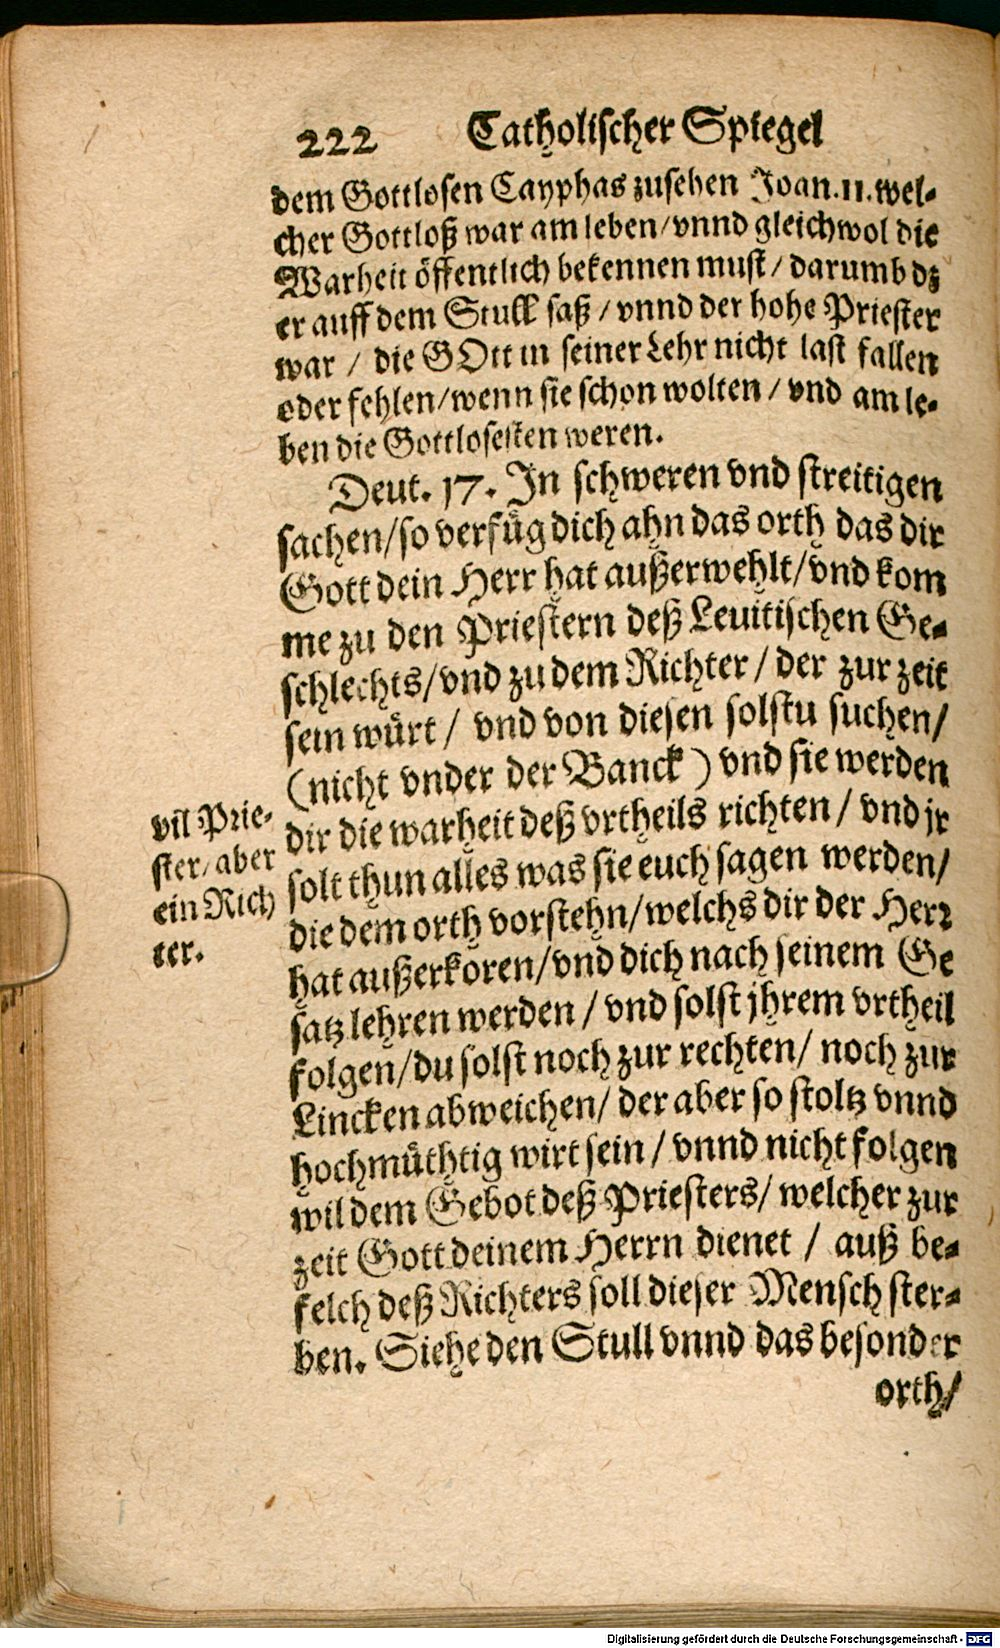 222 Catholischer Spiegel
dem Gottlosen Cayphas zusehen Joan. 11. wel-
cher Gottloß war am leben/vnnd gleichwol die
Warheit öffentlich bekennen must/ darumb dz
er auff dem Stull saß / vnnd der hohe Priester
war / die GOtt in seiner Lehr nicht last fallen
oder fehlen/wenn sie schon wolten / vnd am le-
ben die Gottlosesten weren.
Deut. 17. In schweren vnd streitigen
sachen/so verfüg dich ahn das orth das dir
Gott dein Herr hat außerwehlt/vnd kom
me zu den Priestern deß Leuitischen Ge-
schlechts/vnd zu dem Richter / der zur zeit
sein würt / vnd von diesen solstu suchen/
(nicht vnder der Banck) vnd sie werden
dir die warheit deß vrtheils richten / vnd jr
solt thun alles was sie euch sagen werden/
die dem orth vorstehn/welchs dir der Herr
hat außerkoren/vnd dich nach seinem Ge
satz lehren werden / vnd solst jhrem vrtheil
folgen/du solst noch zur rechten/ noch zur
Lincken abweichen/ der aber so stoltz vnnd
hochmüthtig wirt sein / vnnd nicht folgen
wil dem Gebot deß Priesters/ welcher zur
zeit Gott deinem Herrn dienet / auß be-
felch deß Richters soll dieser Mensch ster-
ben. Siehe den Stull vnnd das besonder
orth/
vil Prie-
ster/ aber
ein Rich
ter.
Digitalisierung gefördert durch die Deutsche Forschungsgemeinschaft - DFG